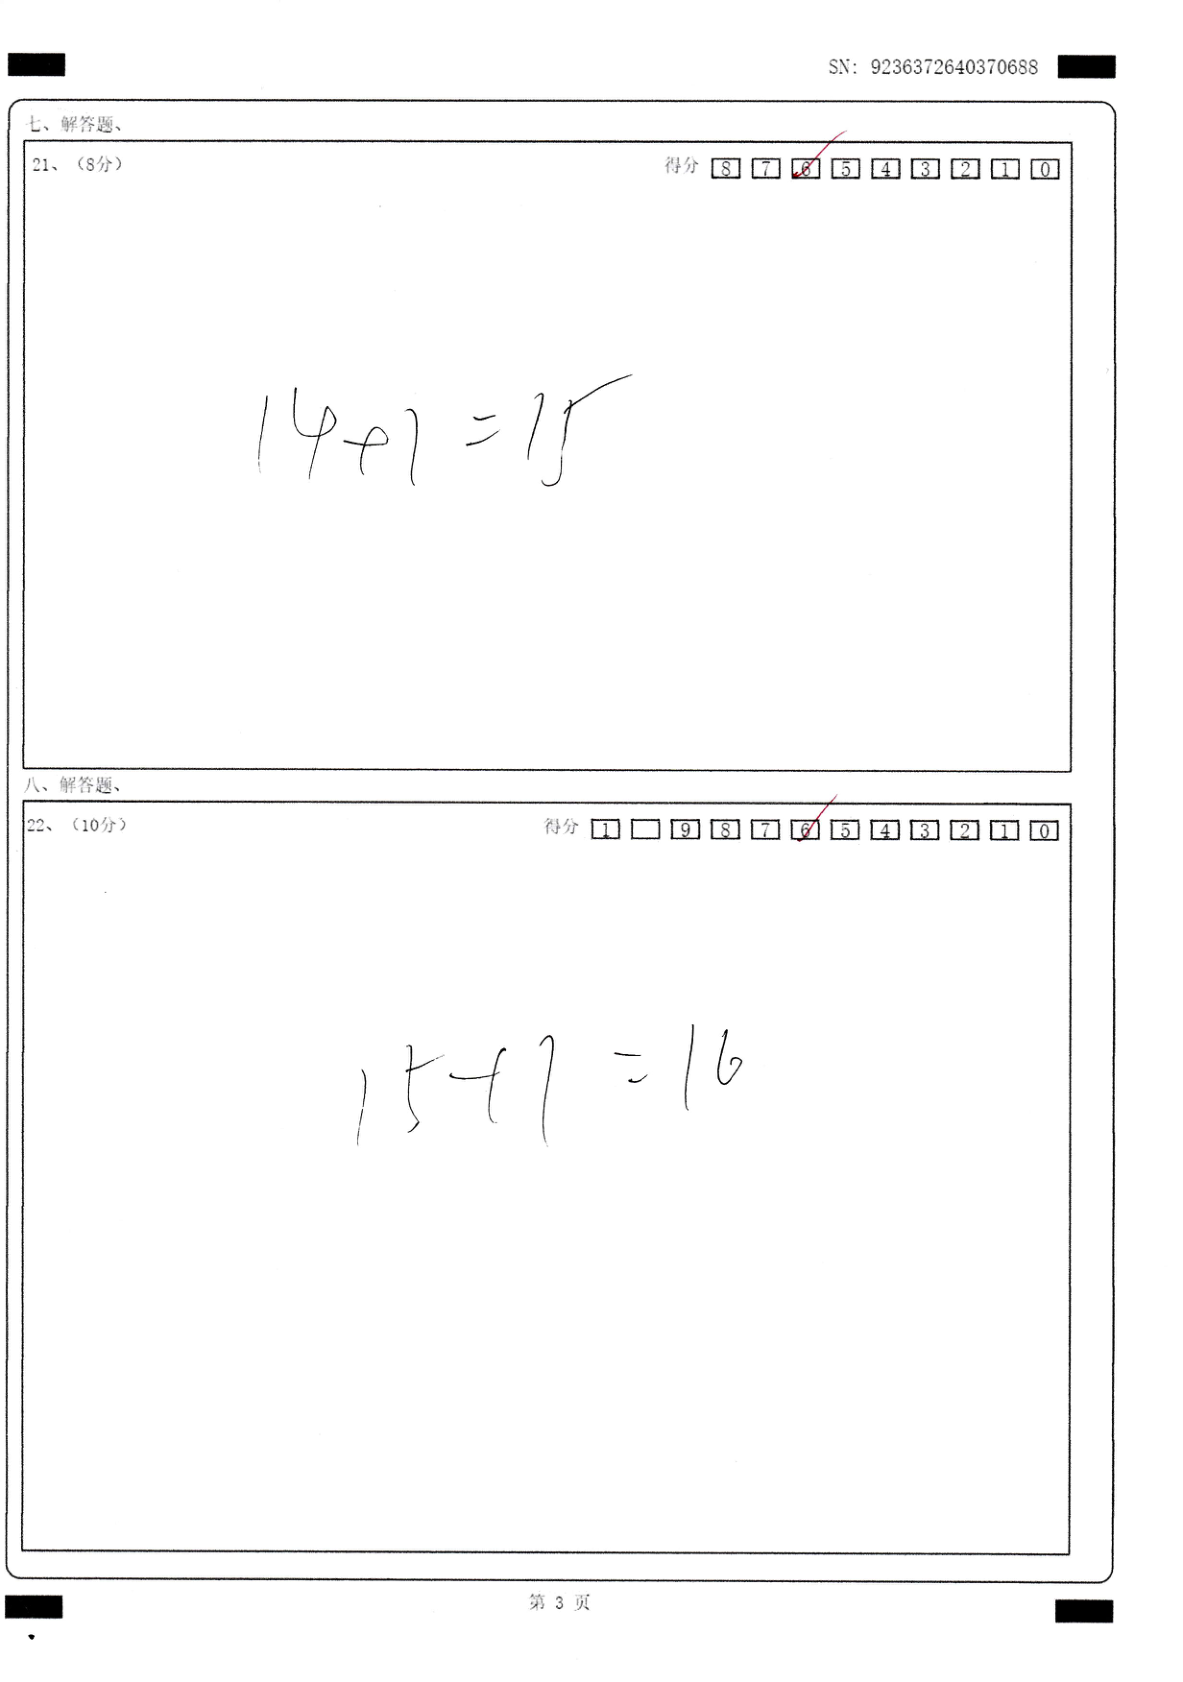 SN: 9236372640370688
七、解答题、
21、（8分） 得分 8 7 6 5 4 3 2 1 0
14+1=15
八、解答题、
22、（10分） 得分 1 9 8 7 6 5 4 3 2 1 0
15+1=16
第 3 页